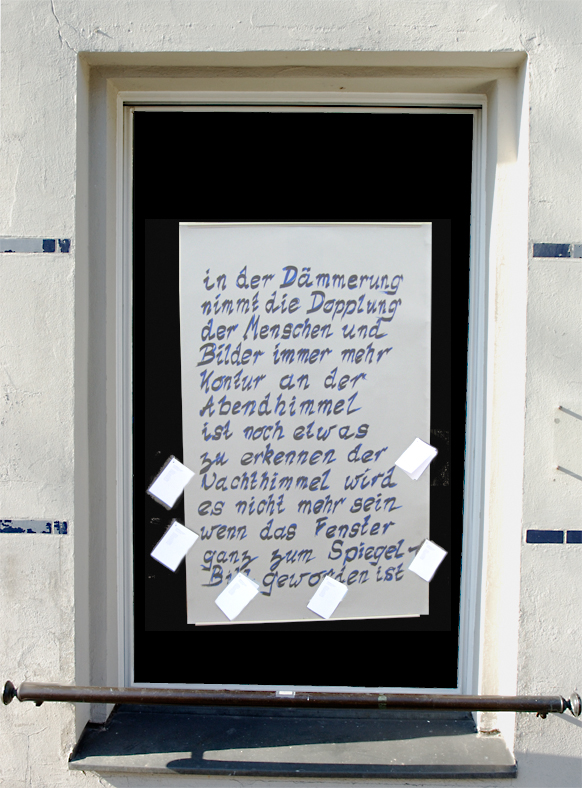 in der Dämmerung
nimmt die Dopplung
der Menschen und
Bilder immer mehr
Kontur an der
Abendhimmel
ist noch etwas
zu erkennen der
Nachthimmel wird
es nicht mehr sein
wenn das Fenster
ganz zum Spiegel-
Bild geworden ist